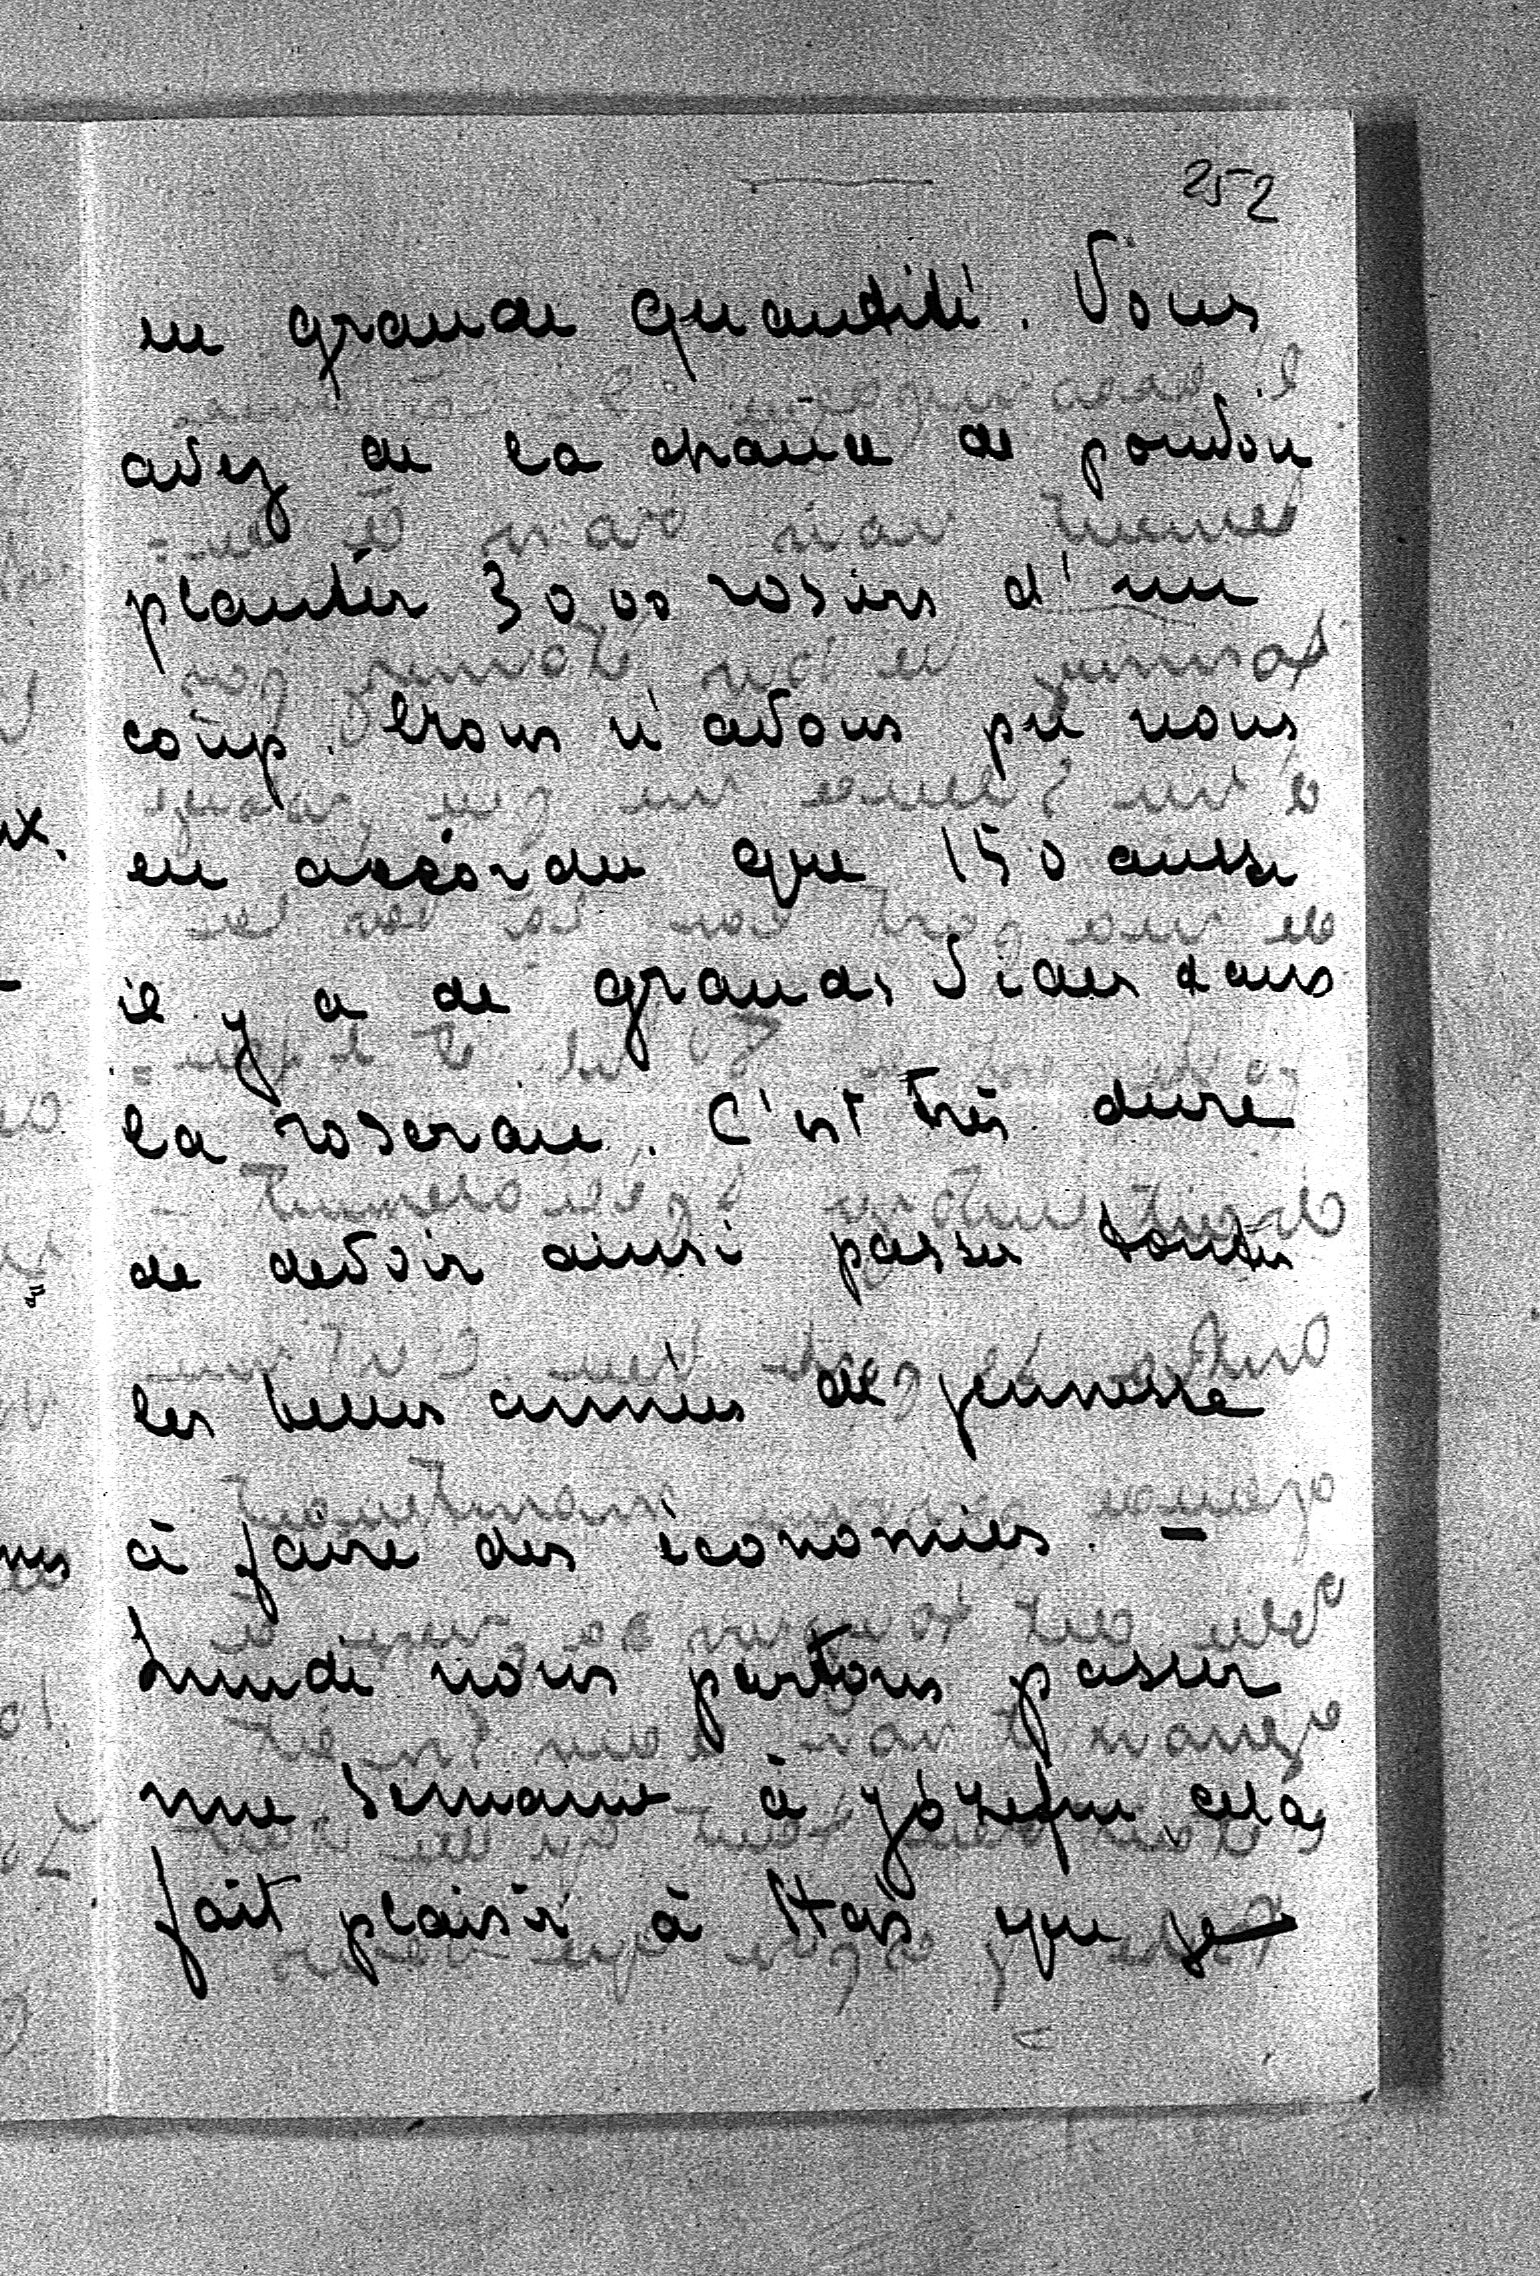 252
en grande quantité. Vous
avez de la chance de pouvoir
planter 3000 rosiers d'un
coup. Nous n'avons pu nous
en accorder que 150 aussi
il y a de grands vides dans
la roseraie. C'est très dure
de devoir ainsi passer toutes
les belles années de jeunesse
à faire des économies. –
Lundi nous partons passer
une semaine à Józefin, cela
fait plaisir à Staś que je